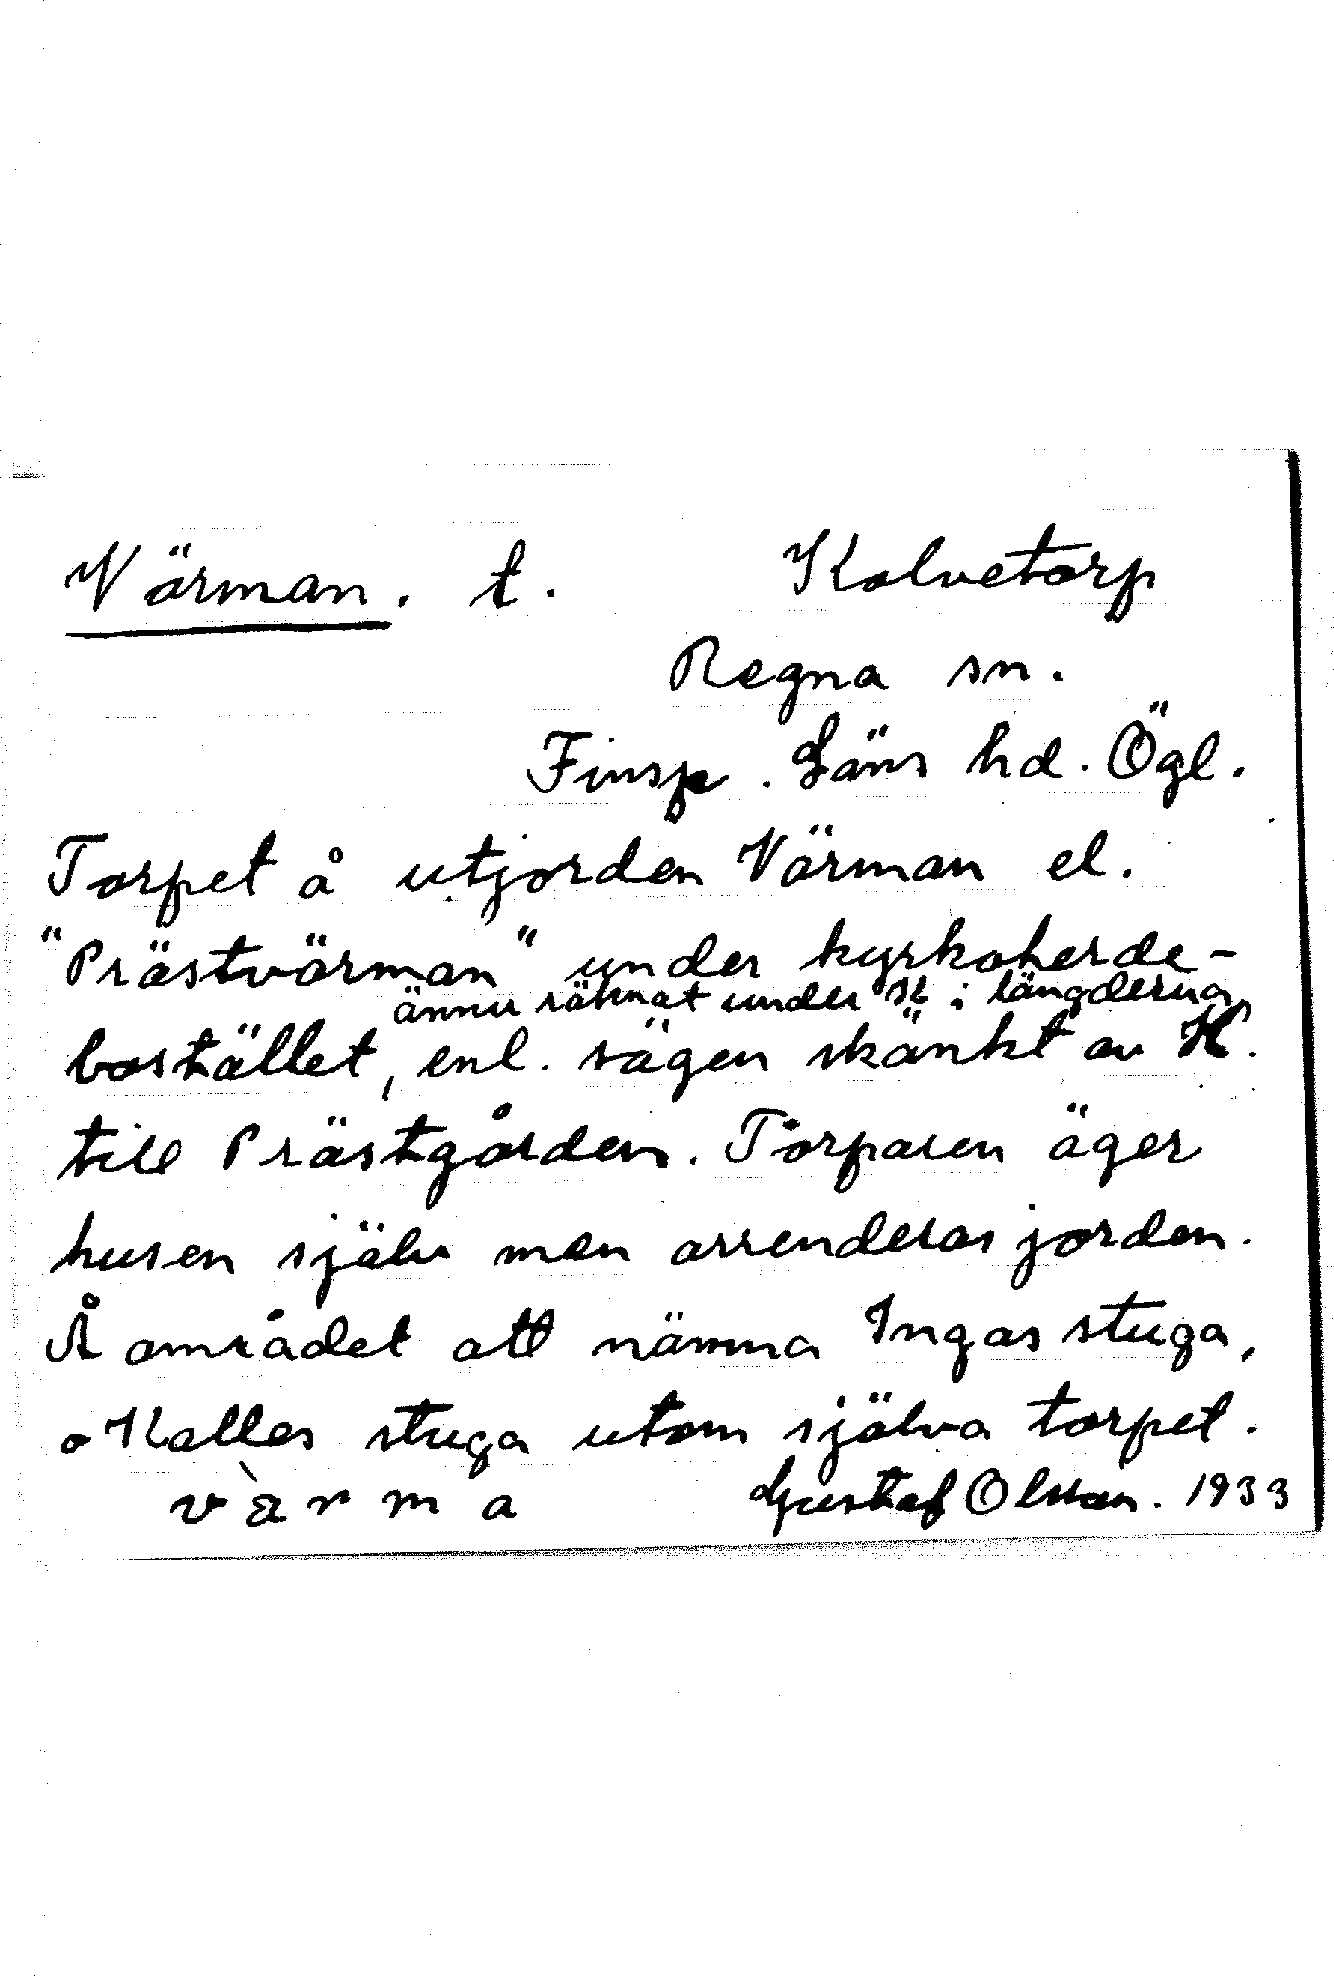 Värman. t. Kolvetorp
Regna sn.
Finsp. Läns hd. Ögl.
Torpet å utjorden Värman el.
"Prästvärman" under kyrkoherde-
ännu räknat under K i längderna
bostället, enl. sägen skänkt av K.
till Prästgården. Torparen äger
husen själv men arrenderas jorden.
Å området att nämna Ingas stuga,
o Kalles stuga utom själva torpet.
värma Gustaf Olsson. 1933